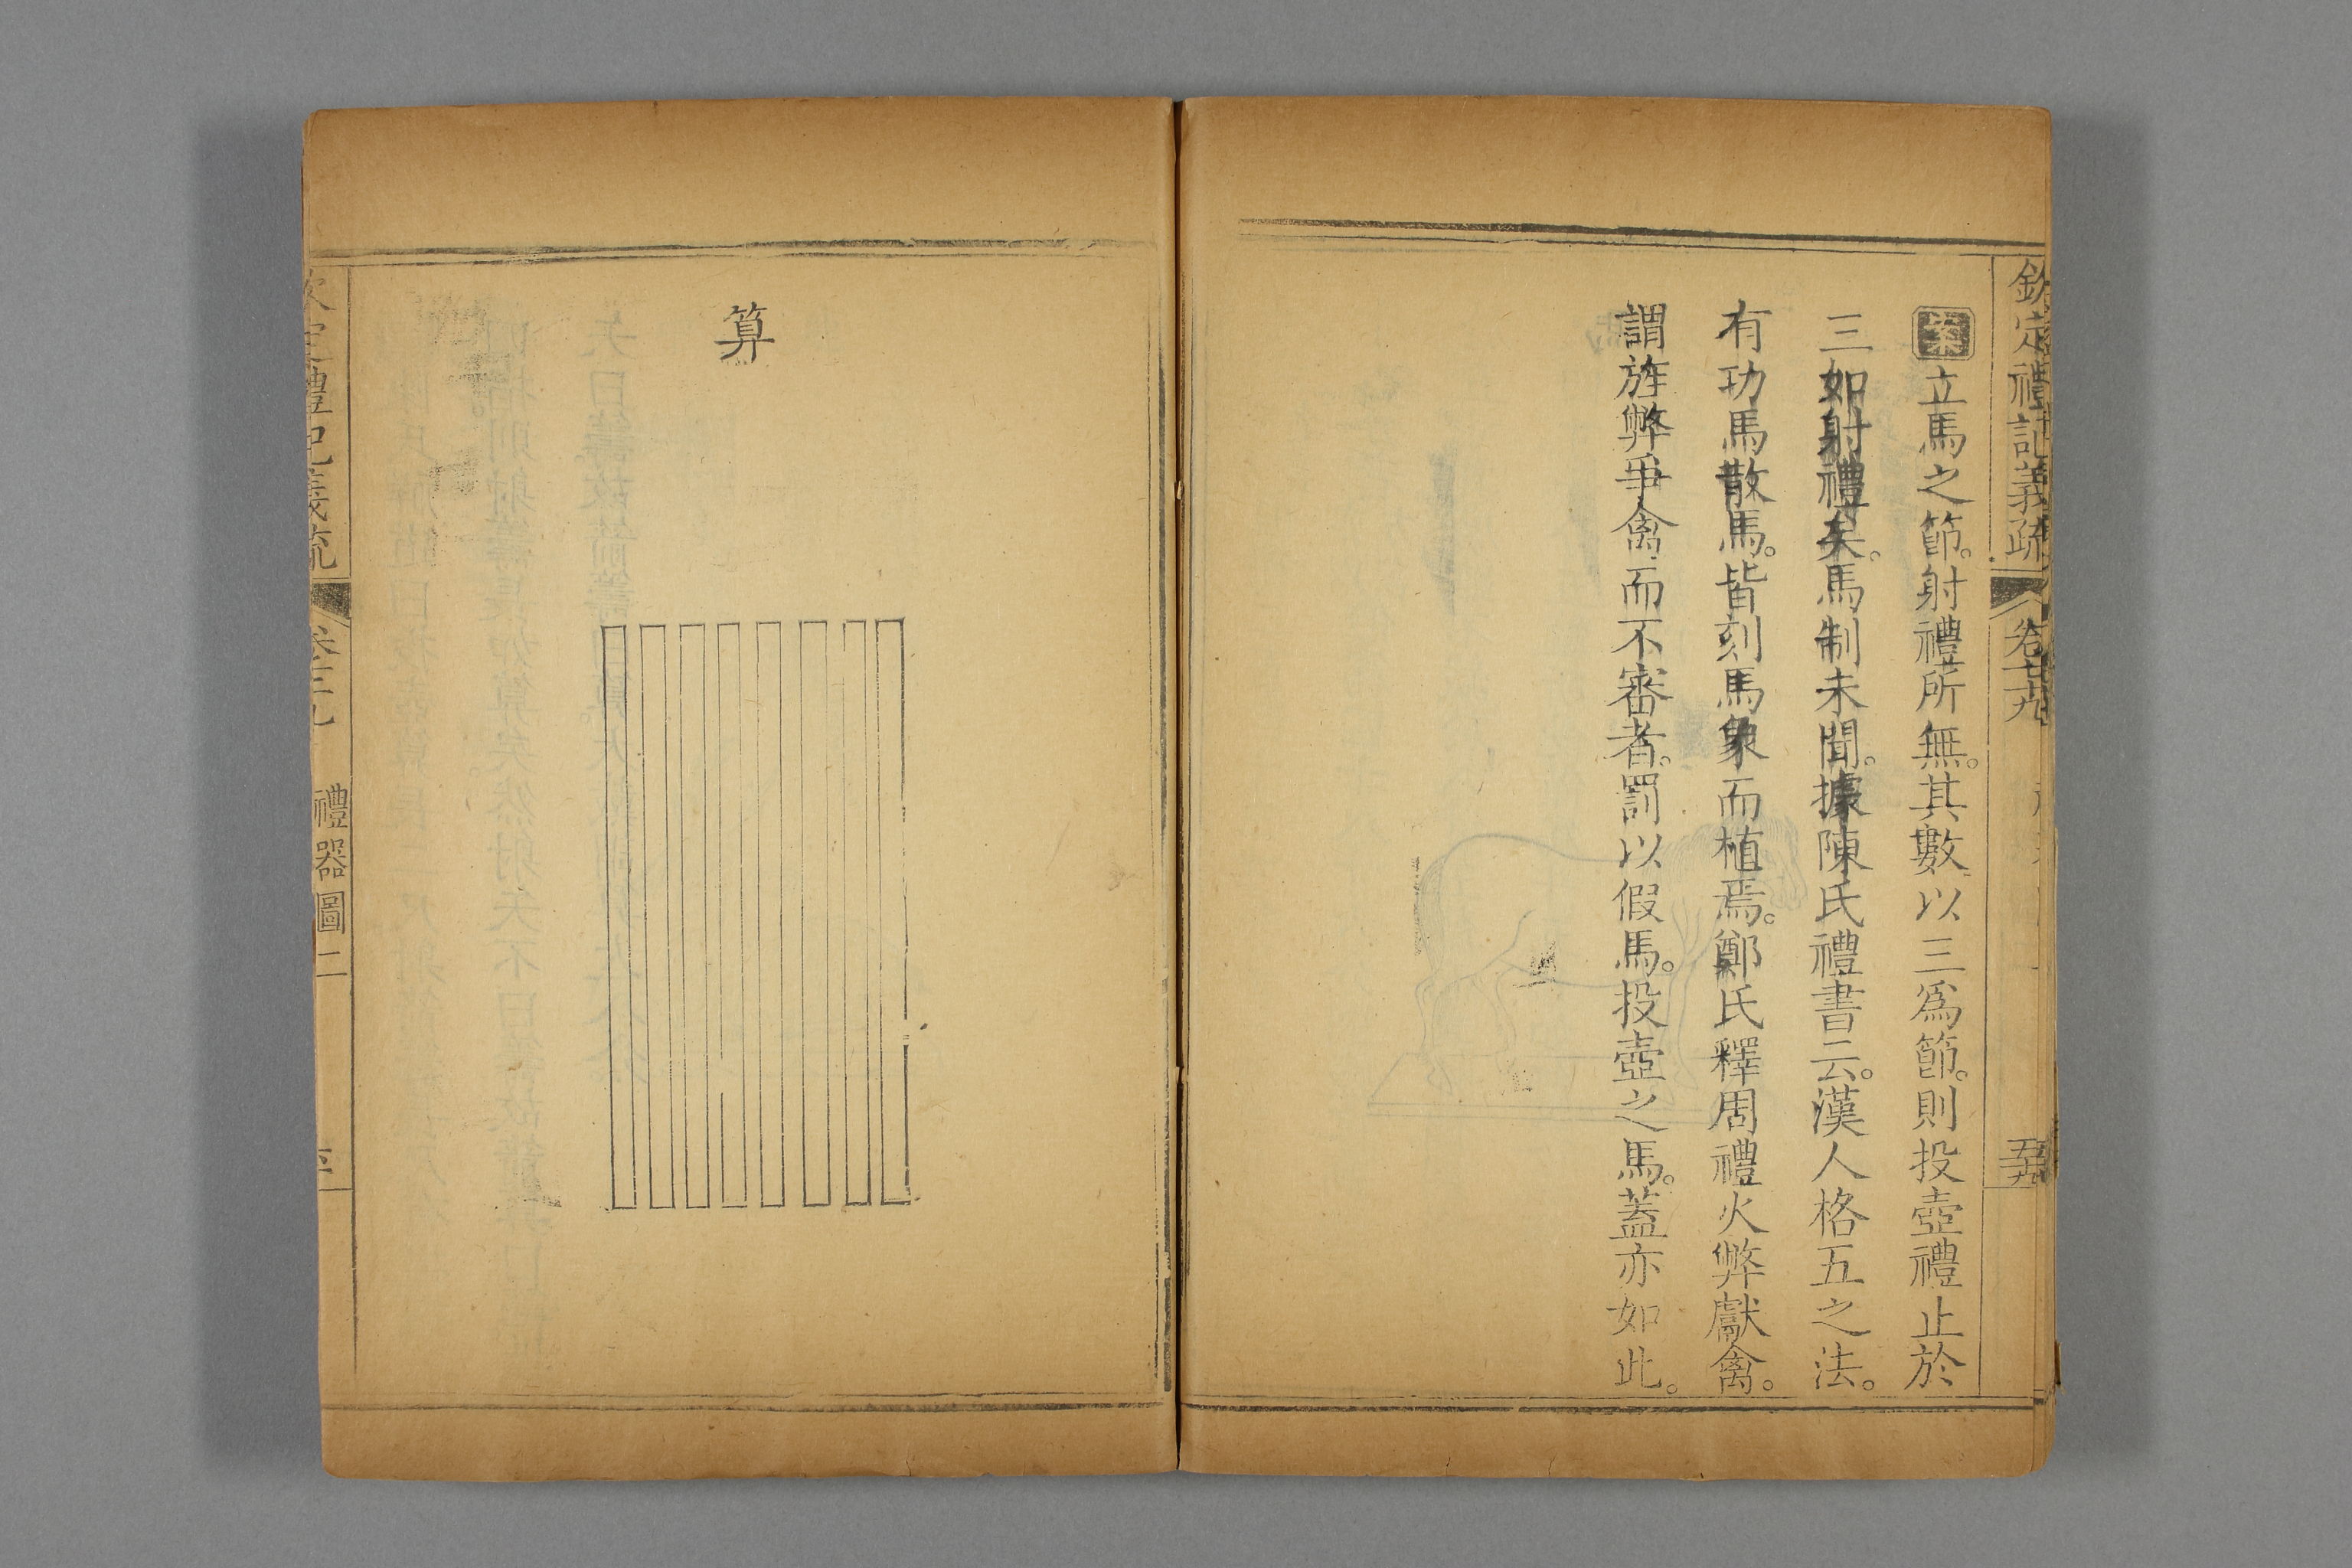 欽定禮記義疏
案立馬之節。射禮所無。其數以三爲節。則投壺禮止於
三如射禮矣。馬制未聞。據陳氏禮書云。漢人格五之法。
有功馬散馬。皆刻馬象而植焉。鄭氏釋周禮火弊獻禽。
謂旌弊爭禽而不審者。罰以假馬。投壺之馬。蓋亦如此。
算
禮器圖二